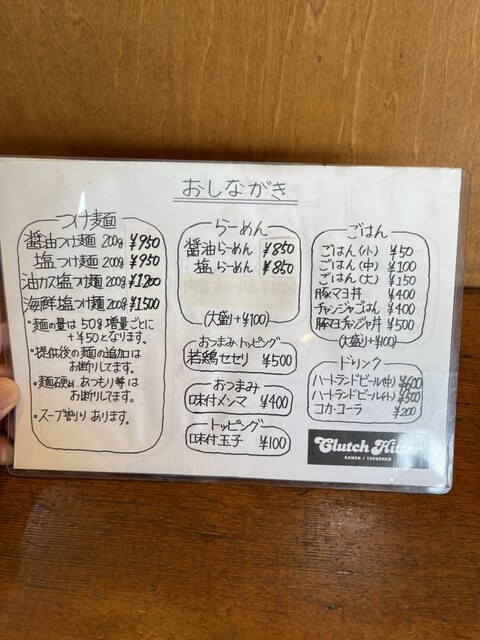 おしながき
つけ麺
醤油つけ麺 200g ¥950
塩つけ麺 200g ¥950
油カス塩つけ麺 200g ¥1200
海鮮塩つけ麺 200g ¥1500
・麺の量は50g増量ごとに
+¥50となります。
・提供後の麺の追加は
お断りしてます。
・麺硬め、あつもり等は
お断りしてます。
・スープ割りあります。
らーめん
醤油らーめん ¥850
塩らーめん ¥850
(大盛り+¥100)
おつまみトッピング
若鶏セセリ ¥500
おつまみ
味付メンマ ¥400
トッピング
味付玉子 ¥100
ごはん
ごはん(小) ¥50
ごはん(中) ¥100
ごはん(大) ¥150
豚マヨ丼 ¥400
チャンジャごはん ¥400
豚マヨチャンジャ丼 ¥500
(大盛り+¥100)
ドリンク
ハートランドビール(中) ¥600
ハートランドビール(小) ¥500
コカ・コーラ ¥200
Clutch Hitter
RAMEN / TSUKEMEN